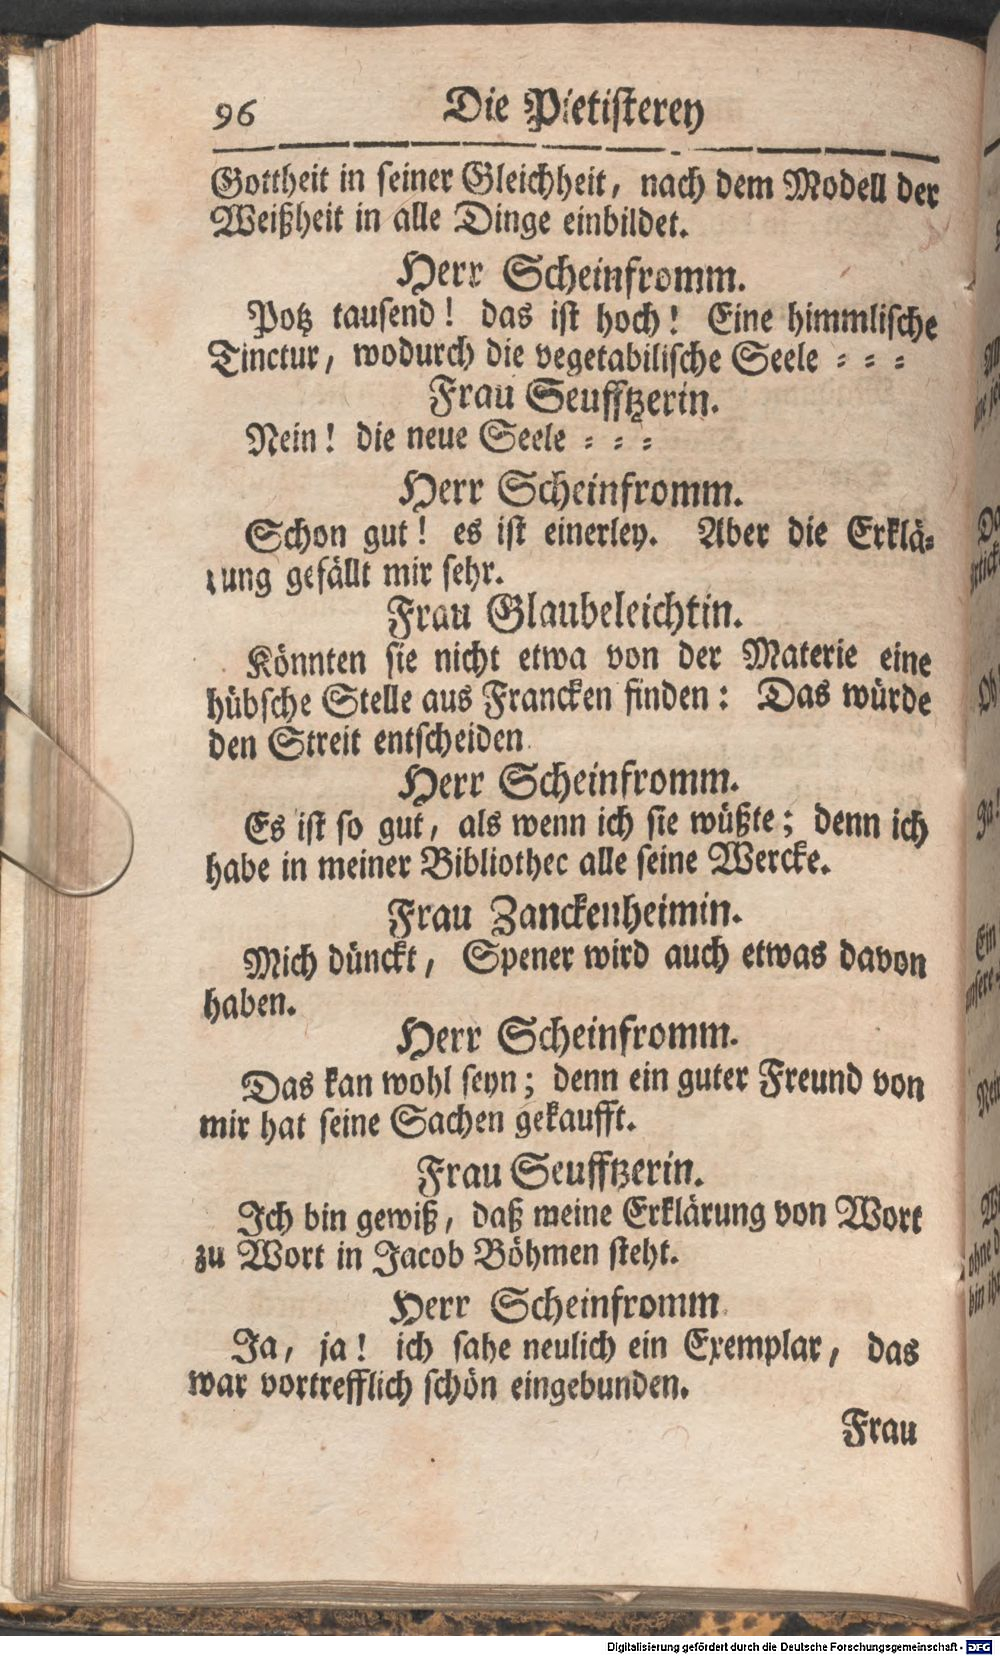 96 Die Pietisterey
Gottheit in seiner Gleichheit, nach dem Modell der
Weißheit in alle Dinge einbildet.
Herr Scheinfromm.
Potz tausend! das ist hoch! Eine himmlische
Tinctur, wodurch die vegetabilische Seele = = =
Frau Seufftzerin.
Nein! die neue Seele = = =
Herr Scheinfromm.
Schon gut! es ist einerley. Aber die Erklä=
rung gefällt mir sehr.
Frau Glaubeleichtin.
Könnten sie nicht etwa von der Materie eine
hübsche Stelle aus Francken finden: Das würde
den Streit entscheiden.
Herr Scheinfromm.
Es ist so gut, als wenn ich sie wüßte; denn ich
habe in meiner Bibliothec alle seine Wercke.
Frau Zanckenheimin.
Mich dünckt, Spener wird auch etwas davon
haben.
Herr Scheinfromm.
Das kan wohl seyn; denn ein guter Freund von
mir hat seine Sachen gekaufft.
Frau Seufftzerin.
Ich bin gewiß, daß meine Erklärung von Wort
zu Wort in Jacob Böhmen steht.
Herr Scheinfromm.
Ja, ja! ich sahe neulich ein Exemplar, das
war vortrefflich schön eingebunden.
Frau
Digitalisierung gefördert durch die Deutsche Forschungsgemeinschaft - DFG